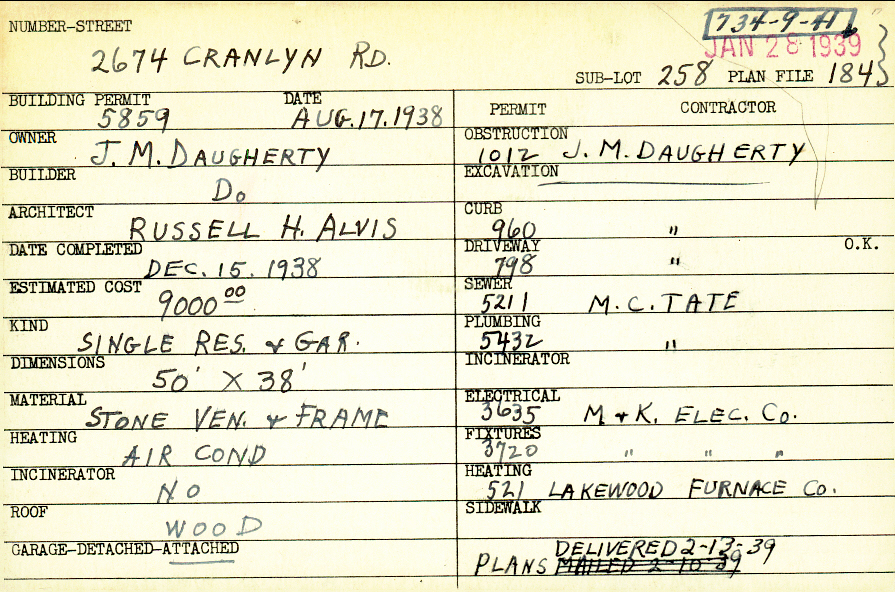 NUMBER-STREET
734-9-41
JAN 28 1939
2674 CRANLYN RD.
SUB-LOT 258 PLAN FILE 184
BUILDING PERMIT DATE
5859 AUG.17.1938
OWNER
J. M. DAUGHERTY
BUILDER
Do
ARCHITECT
RUSSELL H. ALVIS
DATE COMPLETED
DEC. 15. 1938
ESTIMATED COST
9000 00
KIND
SINGLE RES. & GAR.
DIMENSIONS
50' X 38'
MATERIAL
STONE VEN. & FRAME
HEATING
AIR COND
INCINERATOR
NO
ROOF
WOOD
GARAGE-DETACHED-ATTACHED
PERMIT CONTRACTOR
OBSTRUCTION
1012 J. M. DAUGHERTY
EXCAVATION
CURB
960 "
DRIVEWAY O.K.
798 "
SEWER
5211 M.C. TATE
PLUMBING
5432 "
INCINERATOR
ELECTRICAL
3635 M & K. ELEC. Co.
FIXTURES
3720 " " "
HEATING
521 LAKEWOOD FURNACE Co.
SIDEWALK
DELIVERED 2-13-39
PLANS MAILED 2-10-39